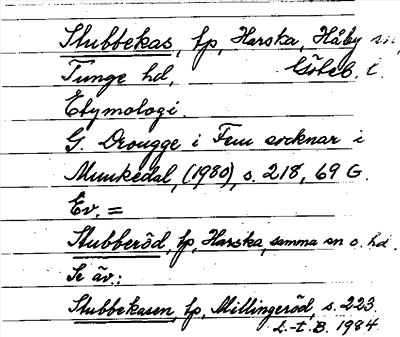 Stubbekas, tp, Harska, Håby sn,
Tunge hd, Göteb. l.
Etymologi.
G. Drougge i Fem socknar i
Munkedal, (1980), s. 218, 69 G.
Ev. =
Stubberöd, tp, Harska, samma sn o. hd.
Se äv.:
Stubbekasen, tp, Millingeröd, s. 223.
L.-t. B. 1984.